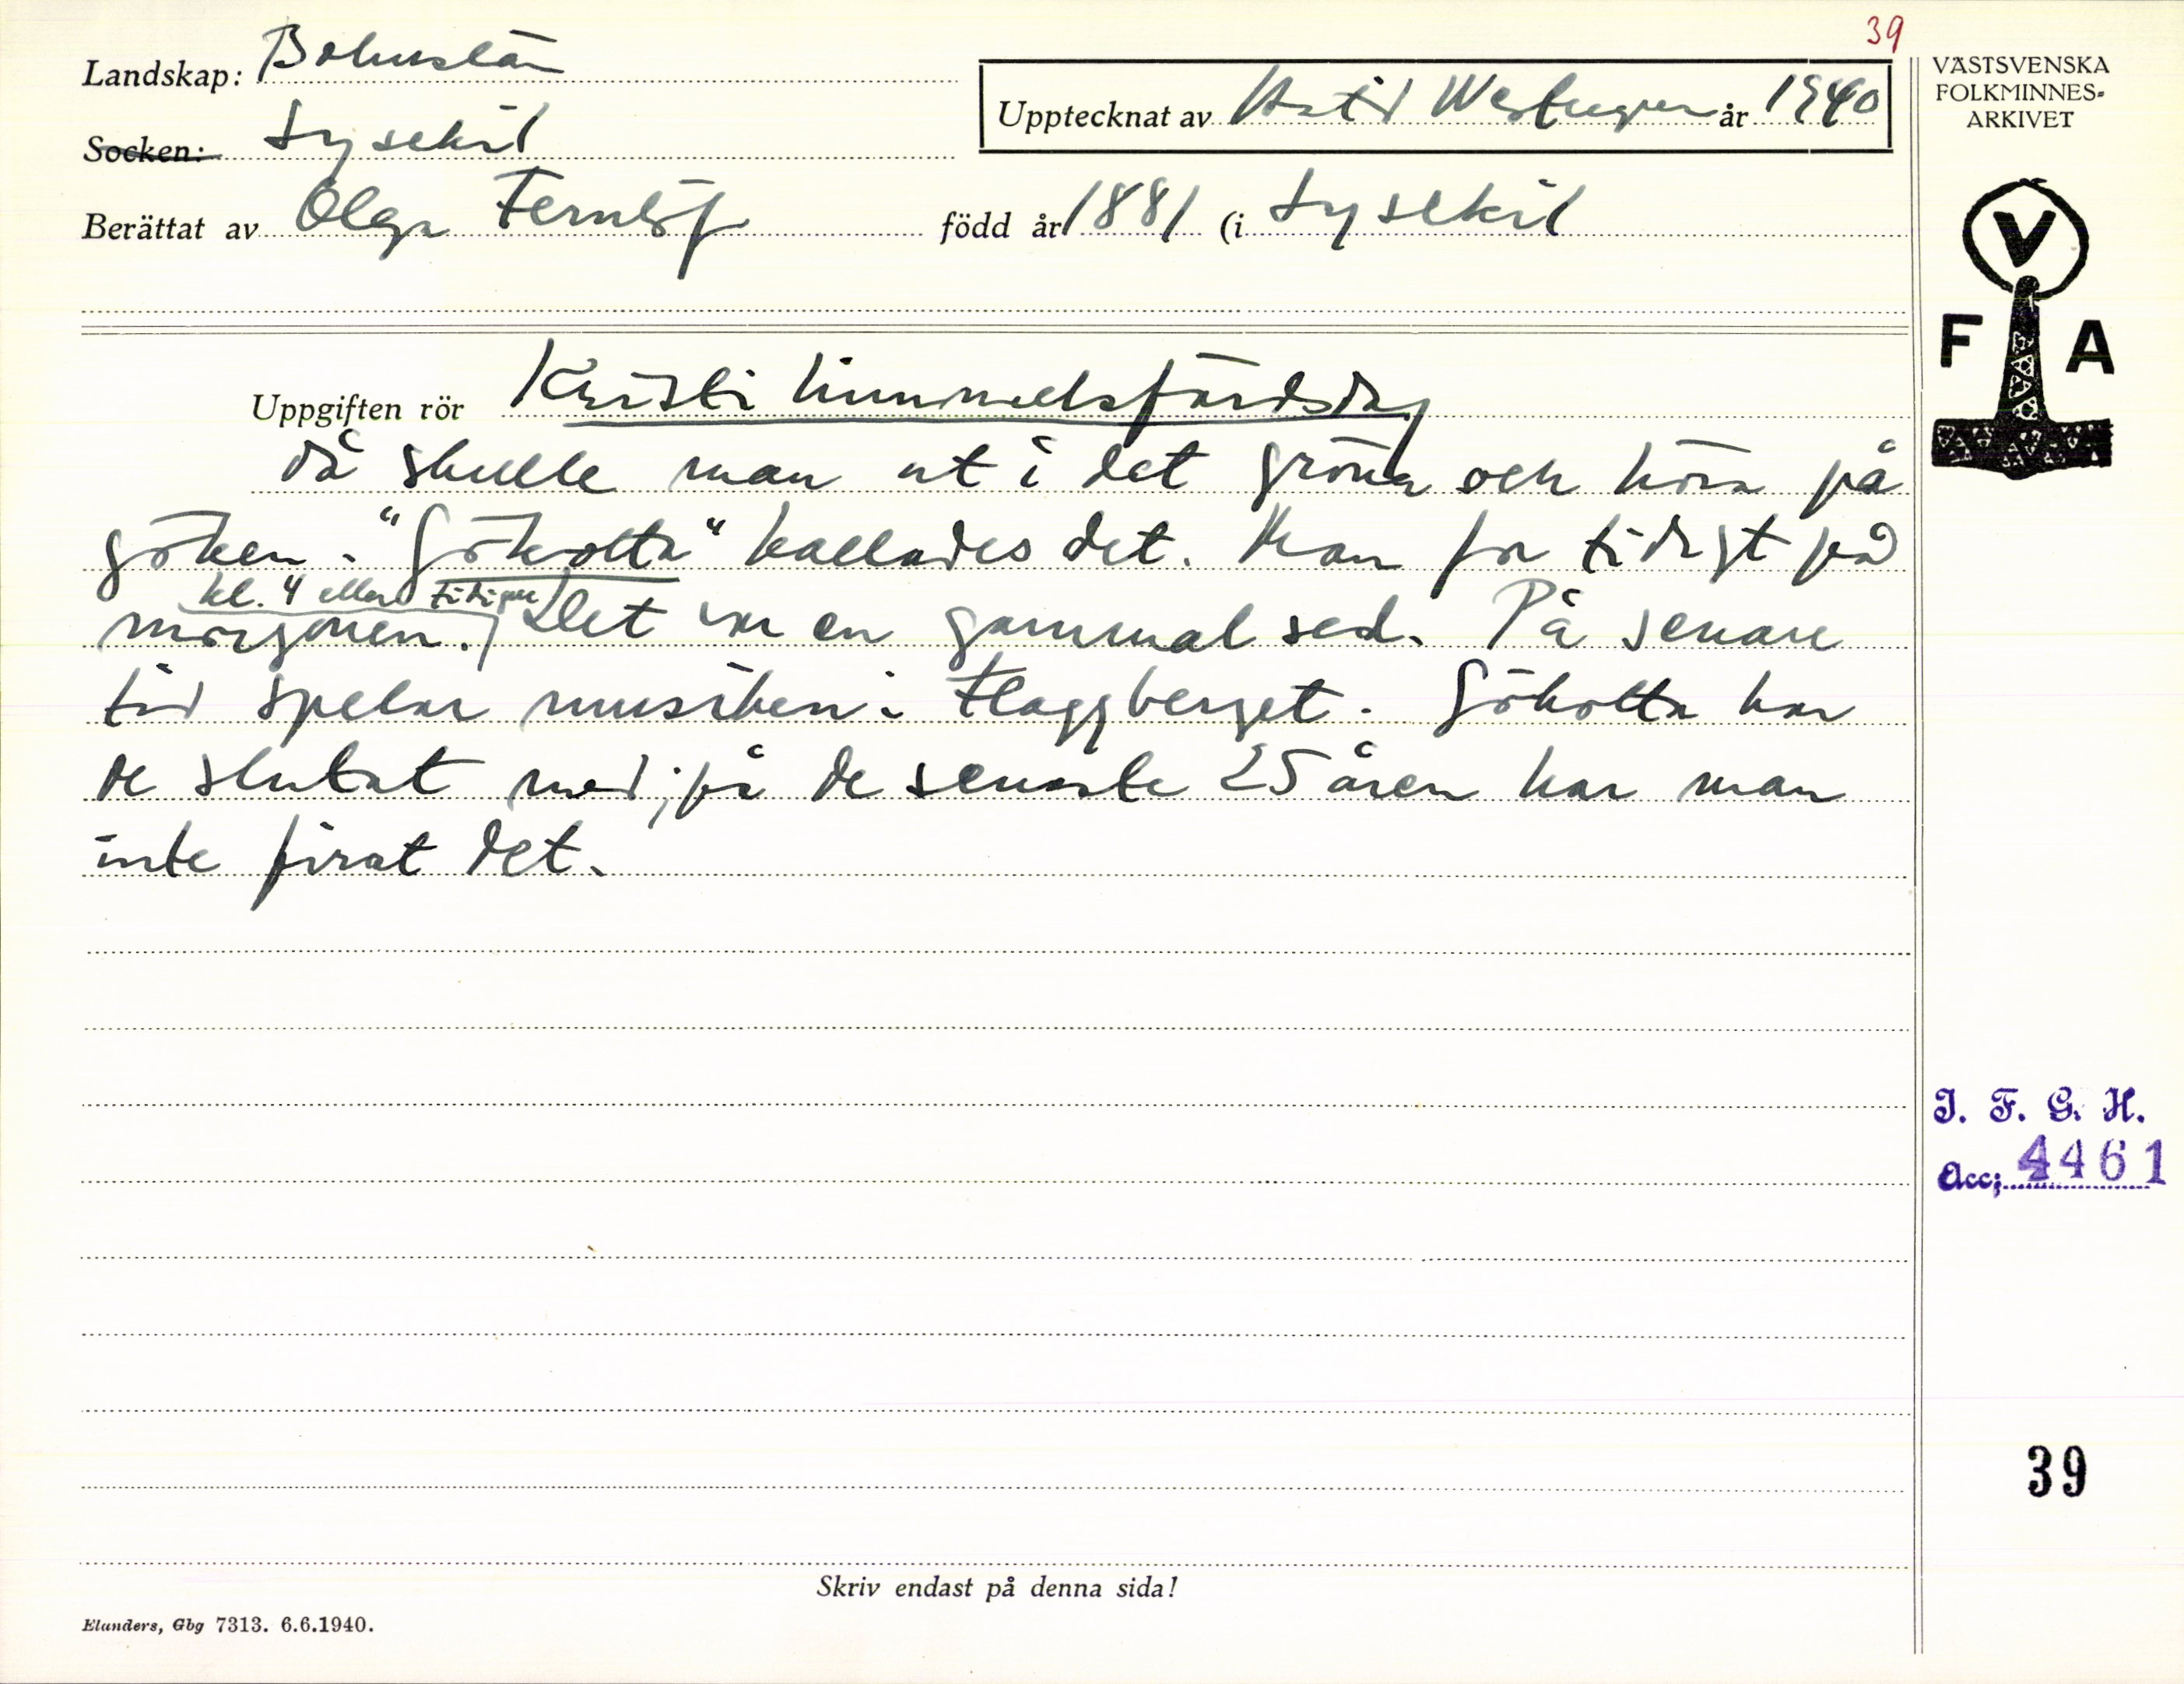 39
Landskap: Bohuslän
Upptecknat av år 1940
Socken: Lysekil
Berättat av Olga Fernlöf född år 1881 (i Lysekil
VÄSTSVENSKA
FOLKMINNES-
ARKIVET
V
F A
Uppgiften rör Kristi himmelsfärdsdag
då skulle man ut i det gröna och höra på
göken. "Gökotta" kallades det. Man for tidigt på
kl. 4 eller tidigare
morgonen. Det var en gammal sed. På senare
tid spelar musiken i Flaggberget. Gökotta har
de slutat med; på de senaste 25 åren har man
inte firat det.
I. F. G. H.
Acc; 4461
39
Skriv endast på denna sida!
Elanders, Gbg 7313. 6.6.1940.